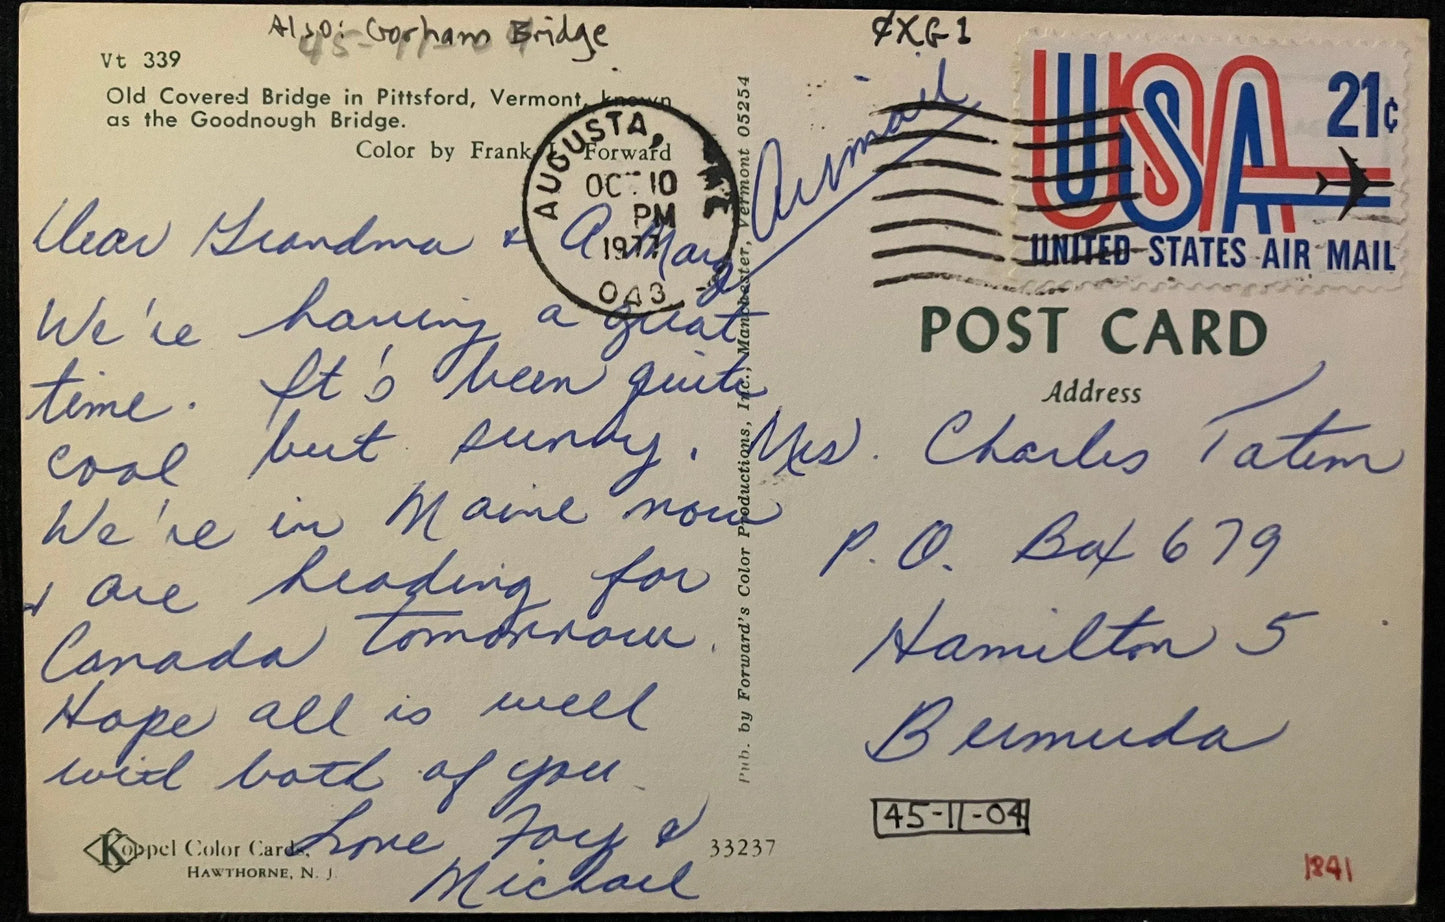 Also: Gorham Bridge
¢XG1
Vt 339
Old Covered Bridge in Pittsford, Vermont, known
as the Goodnough Bridge.
Color by Frank L. Forward
AUGUSTA, ME
OCT 10
PM
1977
043
Airmail
USA 21c
UNITED STATES AIR MAIL
Dear Grandma & A. Mary
We're having a great
time. It's been quite
cool but sunny.
We're in Maine now
& are heading for
Canada tomorrow.
Hope all is well
with both of you
Love Foy &
Michael
Koppel Color Cards,
HAWTHORNE, N. J.
33237
Pub. by Forward's Color Productions, Inc., Manchester, Vermont 05254
POST CARD
Address
Mrs. Charles Tatem
P. O. Box 679
Hamilton 5
Bermuda
45-11-04
1841